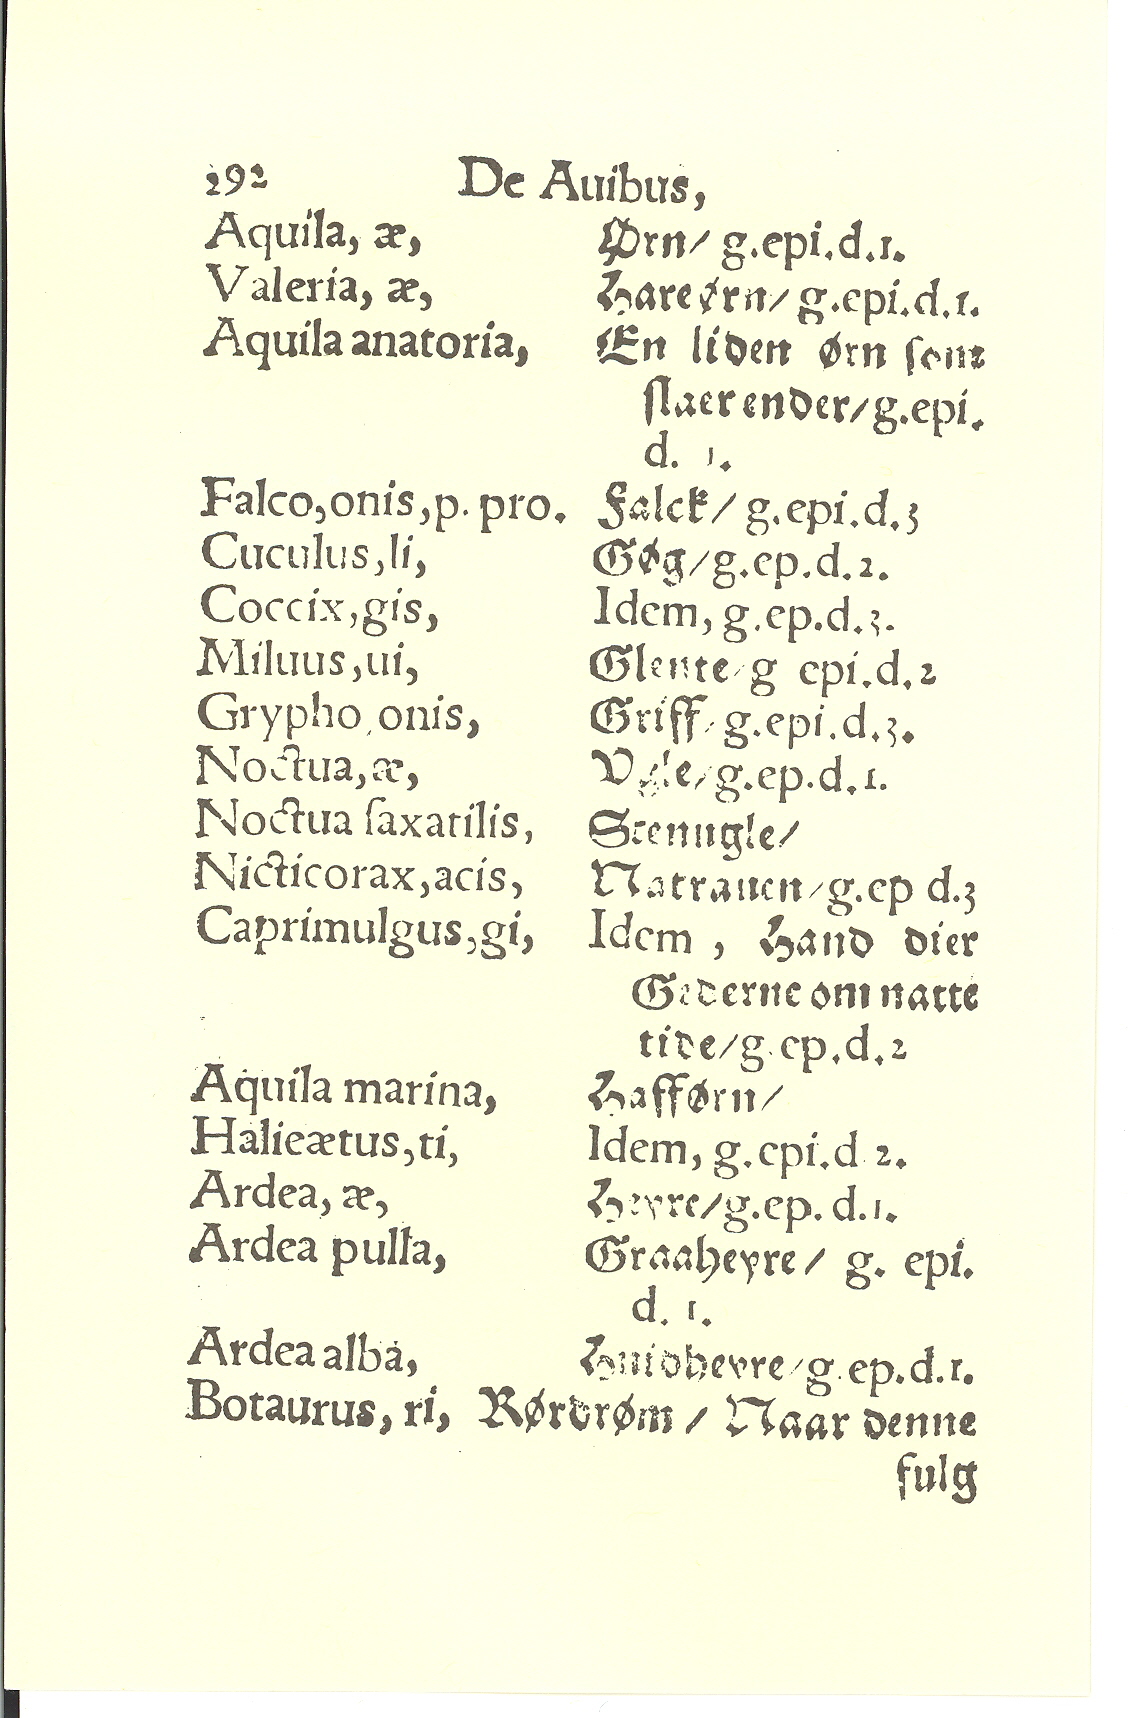 292 De Auibus,
Aquila, æ, Ørn/ g.epi.d.1.
Valeria, æ, Hareørn/ g.epi.d.1.
Aquila anatoria, En liden ørn som
slaer ender/g.epi.
d. 1.
Falco,onis,p.pro. Falck/ g.epi.d.3
Cuculus,li, Gøg/g.ep.d.2.
Coccix,gis, Idem, g.ep.d.3.
Miluus,ui, Glente/g epi.d.2
Grypho,onis, Griff/g.epi.d.3.
Noctua,æ, Vgle/g.ep.d.1.
Noctua ſaxatilis, Stenugle/
Nicticorax,acis, Natrauen/g.ep d.3
Caprimulgus,gi, Idem , Hand dier
Gederne om natte
tide/g.ep.d.2
Aquila marina, Hafførn/
Halieætus,ti, Idem, g.epi.d 2.
Ardea, æ, Heyre/g.ep. d.1.
Ardea pulla, Graaheyre/ g. epi.
d. 1.
Ardea alba, Huidheyre/g.ep.d.1.
Botaurus, ri, Rørdrøm / Naar denne
fulg